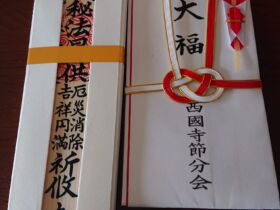 大福
西國寺節分会
秘法星供
厄災消除
吉祥円満
祈攸